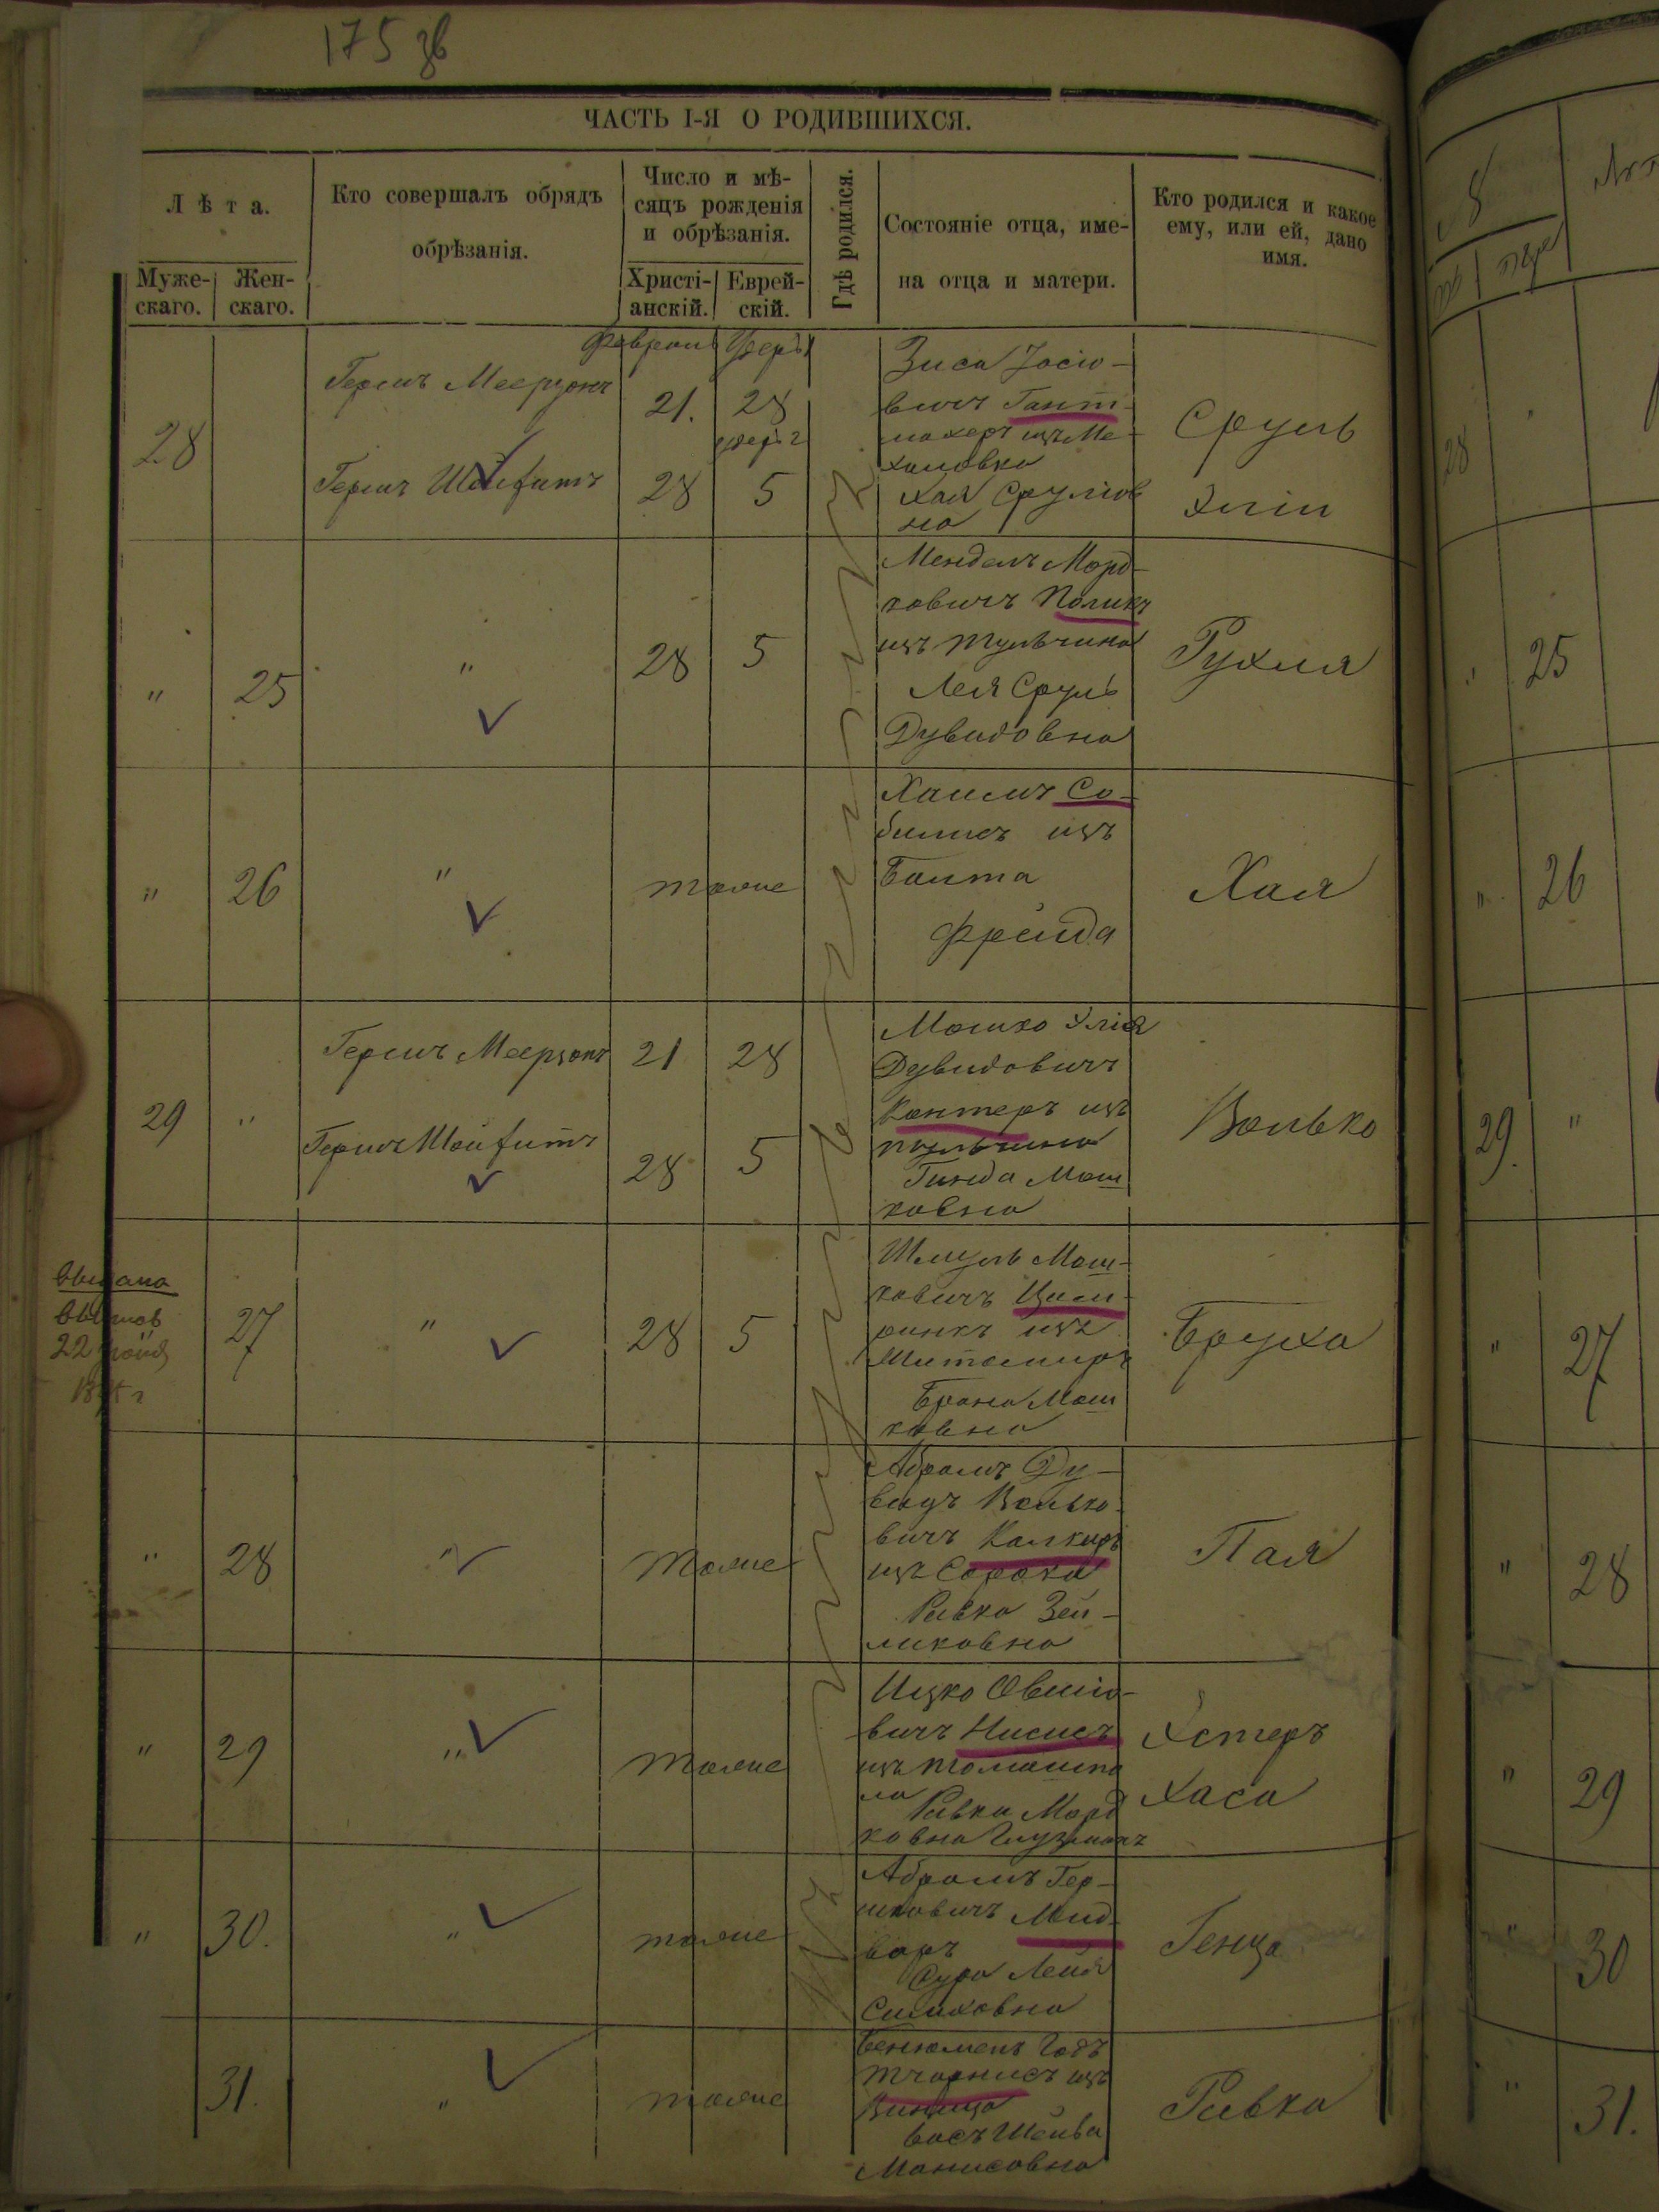 175 зв
ЧАСТЬ I-Я О РОДИВШИХСЯ.
Лѣта.
Муже-
скаго.
Жен-
скаго.
Кто совершалъ обрядъ
обрѣзанія.
Число и мѣ-
сяцъ рожденія
и обрѣзанія.
Христі-
анскій.
Еврей-
скій.
Гдѣ родился.
Состояніе отца, име-
на отца и матери.
Кто родился и какое
ему, или ей, дано
имя.
28
Гершъ Меерзонъ
Гершъ Шойфитъ
Февраль
21. 28
28 5
Зиса Іосіо-
вичъ Гант-
махеръ изъ Ме-
ховки
Хая Сруліов
на
Сруль
Эліи
" 25 "
28 5
Мендель Морд-
ковичъ Поликъ
изъ Тульчина
Лея Сруль
Дувидовна
Рухля
" 26 "
тоже
Хаимъ Со-
билисъ изъ
Балта
Фрейда
Хая
29 "
Гершъ Меерзонъ
Гершъ Шойфитъ
21 28
28 5
Мошко Элія
Дувидовичъ
Кантеръ изъ
Тульчина
Гинда Мош
ковна
Волько
22
27 "
28 5
Шмуль Мош-
ковичъ Цым-
ринкъ изъ
Житомиръ
Брана Мош
ковна
Бруха
" 28 "
тоже
Абрамъ Ду-
видъ Волько-
вичъ Калкиръ
изъ Сорока
Ривка Зей-
ликовна
Пая
" 29 "
тоже
Ицко Овшіо-
вичъ Нисисъ
изъ Томашпо
ла
Ривка Морд
ковна Глузманъ
Эстеръ
Хаса
" 30. "
тоже
Абрамъ Гер-
шковичъ Мид-
варъ
Сура Лейя
Симховна
Генца
31. "
тоже
Бенюменъ Годъ
Тчарнисъ изъ
Винница
Бася Шейва
Манисовна
Ривка
28
" 25
" 26
29. "
" 27
" 28
" 29
" 30
" 31.